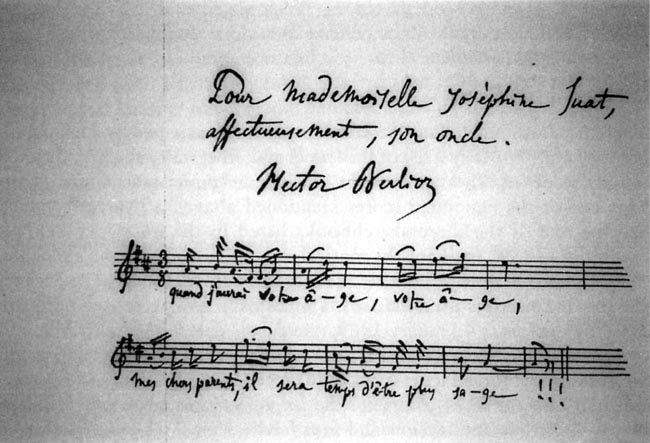 Pour Mademoiselle Joséphine Suat,
affectueusement, son oncle.
Hector Berlioz
3
8
quand j'aurai votre â-ge, votre â-ge,
mes chers parents, il sera temps d'être plus sa-ge !!!